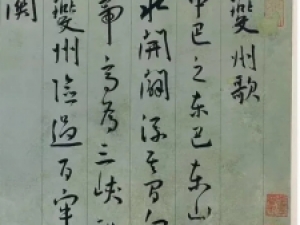 夔州歌
中巴之东巴东山
水開闢流其間白
帝高為三峡
夔州險過百牢
関